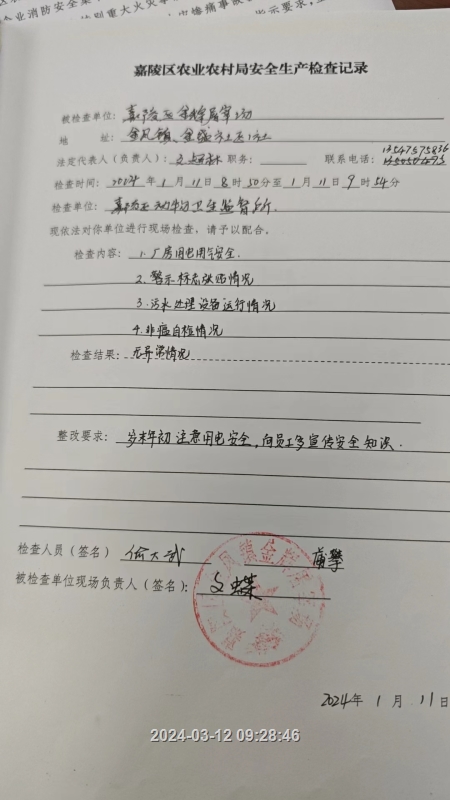 嘉陵区农业农村局安全生产检查记录
被检查单位：嘉陵区金辉屠宰场
地 址：金凤镇
法定代表人（负责人）： 职务： 联系电话：13547575836
检查时间：2024年1月11日8时50分至1月11日9时54分
检查单位：嘉陵区动物卫生监督所.
现依法对你单位进行现场检查，请予以配合。
检查内容：1.厂房用电用气安全.
2.警示标志张贴情况
3.污水处理设备运行情况
4.非瘟自检情况
检查结果：无异常情况
整改要求：岁末年初注意用电安全，向员工多宣传安全知识.
检查人员（签名）
被检查单位现场负责人（签名）：文蝶
2024年1月11日
2024-03-12 09:28:46